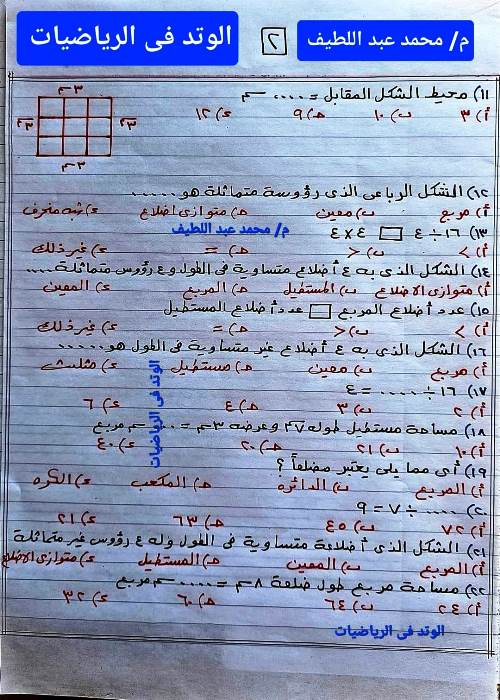 الوتد فى الرياضيات
٢
م/ محمد عبد اللطيف
١١) محيط الشكل المقابل = ..... سم
أ) ٣ ب) ١٠ هـ) ٩ ء) ١٢
٣سم
٣سم
٣سم
٣سم
١٢) الشكل الرباعى الذى رؤوسة متماثلة هو ......
أ) مربع ب) معين هـ) متوازى اضلاع ء) شبه منحرف
١٣) ١٦ ÷ ٤ □ ٤ × ٤
م/ محمد عبد اللطيف
أ) > ب) < هـ) = ء) غير ذلك
١٤) الشكل الذى به ٤ أضلاع متساوية فى الطول و ٤ رؤوس متماثلة ....
أ) متوازى الاضلاع ب) المستطيل هـ) المربع ء) المعين
١٥) عدد أضلاع المربع □ عدد أضلاع المستطيل
أ) > ب) < هـ) = ء) غير ذلك
١٦) الشكل الذى به ٤ أضلاع غير متساوية فى الطول هو ......
أ) مربع ب) معين هـ) مستطيل ء) مثلث
١٧) ١٦ ÷ .... = ٤
أ) ٢ ب) ٣ هـ) ٤ ء) ٦
الوتد فى الرياضيات
١٨) مساحة مستطيل طوله ٧سم وعرضه ٣سم = .... سم مربع
أ) ١٠ ب) ٢١ هـ) ٢٠ ء) ٤٠
١٩) أى مما يلى يعتبر مضلعاً ؟
أ) المربع ب) الدائرة هـ) المكعب ء) الكره
٢٠) .... ÷ ٧ = ٩
أ) ٧٢ ب) ٤٥ هـ) ٦٣ ء) ٢١
٢١) الشكل الذى أضلاعة متساوية فى الطول وله ٤ رؤوس غير متماثلة
أ) المربع ب) المعين هـ) المستطيل ء) متوازى الاضلاع
٢٢) مساحة مربع طول ضلعة ٨سم = ..... سم مربع
أ) ٢٤ ب) ٦٤ هـ) ٦٠ ء) ٣٢
الوتد فى الرياضيات